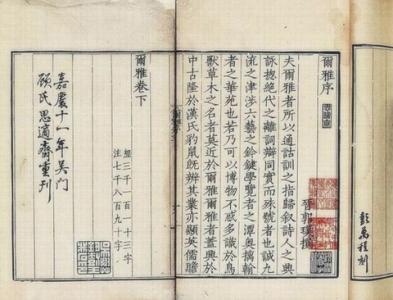 彭萬程刻
爾雅序
晉郭璞撰
夫爾雅者所以通詁訓之指歸敘詩人之興
詠揔絕代之離詞辯同實而殊號者也誠九
流之津涉六藝之鈐鍵學覽者之潭奧摛翰
者之華苑也若乃可以博物不惑多識於鳥
獸草木之名者莫近於爾雅爾雅者蓋興於
中古隆於漢氏豹鼠旣辨其業亦顯英儒贍
爾雅卷下
經三千一百一十三字
注七千八百九十字
嘉慶十一年吳門
顧氏思適齋重刊